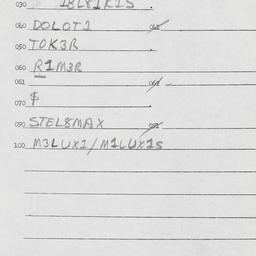 030 18L81K1S.
040 DOLOT1 041
050 TOK3R.
060 R1M3R
061 062
070 $.
090 STEL8MAX 091
100 M3LUX1/M1LUX1s